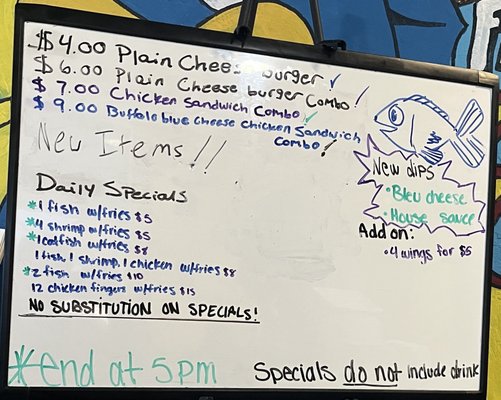 $4.00 Plain Cheese burger!
$6.00 Plain Cheese burger Combo!
$7.00 Chicken Sandwich Combo!
$9.00 Buffalo blue cheese Chicken Sandwich
Combo!
New Items!!
Daily Specials
*1 fish w/fries $5
*4 shrimp w/fries $5
*1 catfish w/fries $8
1 fish, 1 shrimp, 1 chicken w/fries $8
*2 fish w/fries $10
12 chicken fingers w/fries $15
NO SUBSTITUTION ON SPECIALS!
*end at 5pm
New dips
•Bleu cheese
•House sauce
Add on:
•4 wings for $5
Specials do not include drink